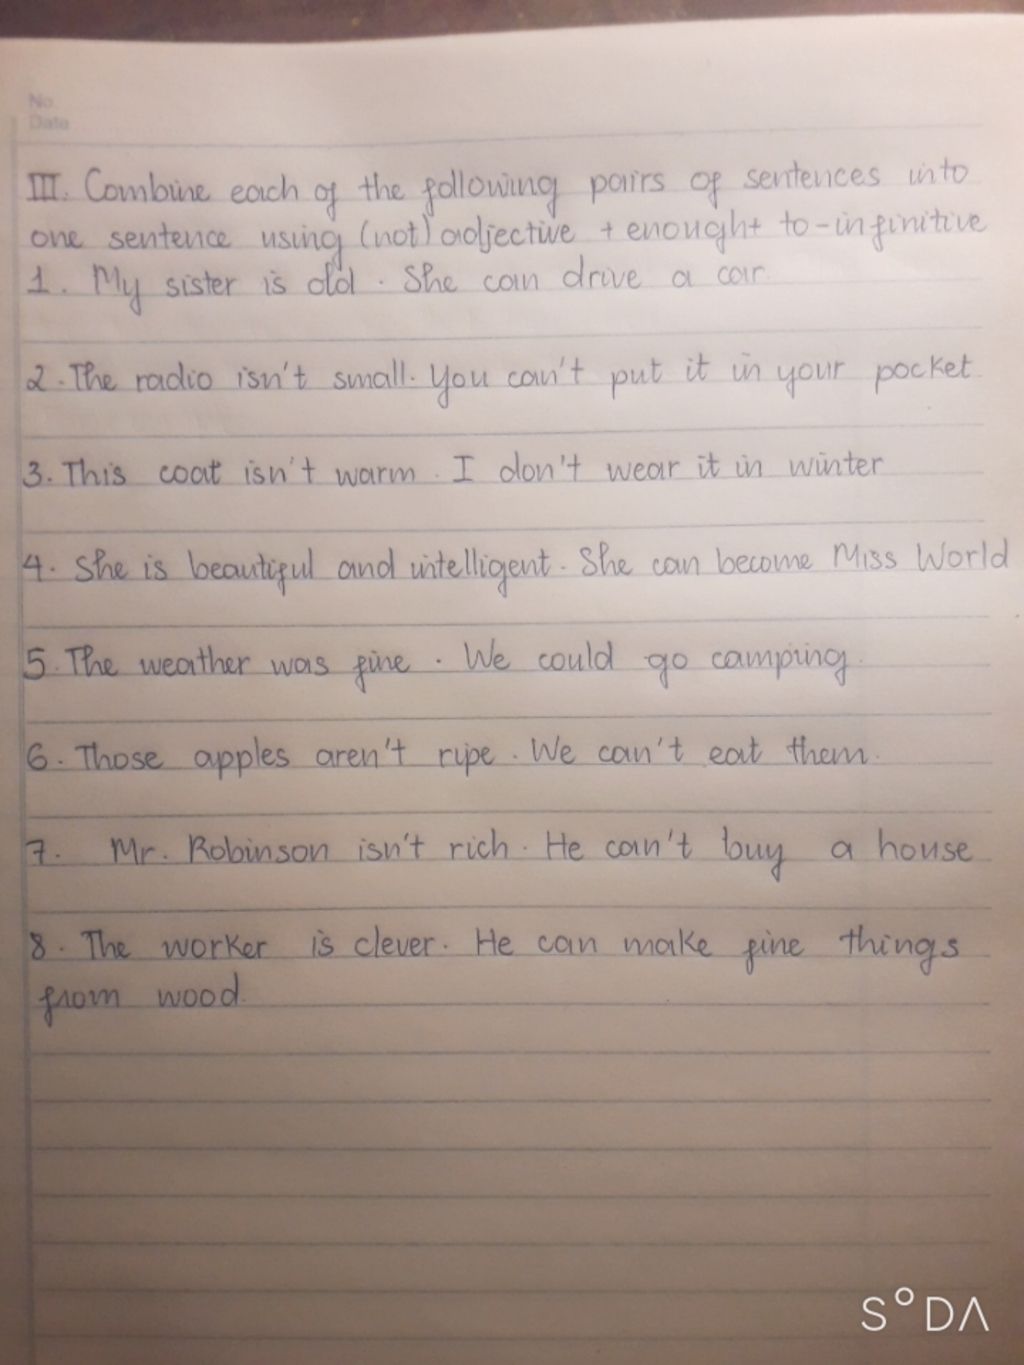 No.
Date
III. Combine each of the following pairs of sentences into
one sentence using (not) adjective + enough+ to-infinitive
1. My sister is old. She can drive a car.
2. The radio isn't small. You can't put it in your pocket.
3. This coat isn't warm. I don't wear it in winter
4. She is beautiful and intelligent. She can become Miss World
5. The weather was fine. We could go camping.
6. Those apples aren't ripe. We can't eat them.
7. Mr. Robinson isn't rich. He can't buy a house
8. The worker is clever. He can make fine things
from wood.
SODA